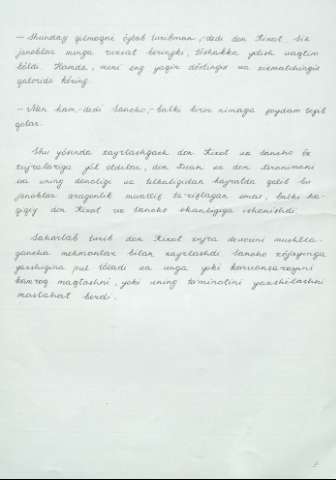 – Shunday qilmoqni o'ylab turibman, -dedi don Kixot. Siz
janoblar menga ruxsat beringki, to'shakka yotish vaqtim
bo'ldi. Hamda, meni eng yaqin do'stingiz va xizmatchingiz
qatorida ko'ring.
– Men ham, -dedi Sancho, - balki biror nimaga foydam tegib
qolar.
Shu yo'sinda xayrlashgach don Kixot va Sancho o'z
hujralariga yo'l oldilar, don Xuan va don Xeronimoni
va uning donoligi va telbaligidan hayratda qolib bu
janoblar aragonlik muallif ta'riflagan emas, balki ha-
qiqiy don Kixot va Sancho ekanligiga ishonishdi.
Saharlab turib don Kixot qo'shni devorni mushtla-
gancha mehmonlar bilan xayrlashdi Sancho xo'jayinga
yaxshigina pul to'ladi va unga yoki karvonsaroyini
kamroq maqtashni, yoki uning ta'minotini yaxshilashni
maslahat berdi.